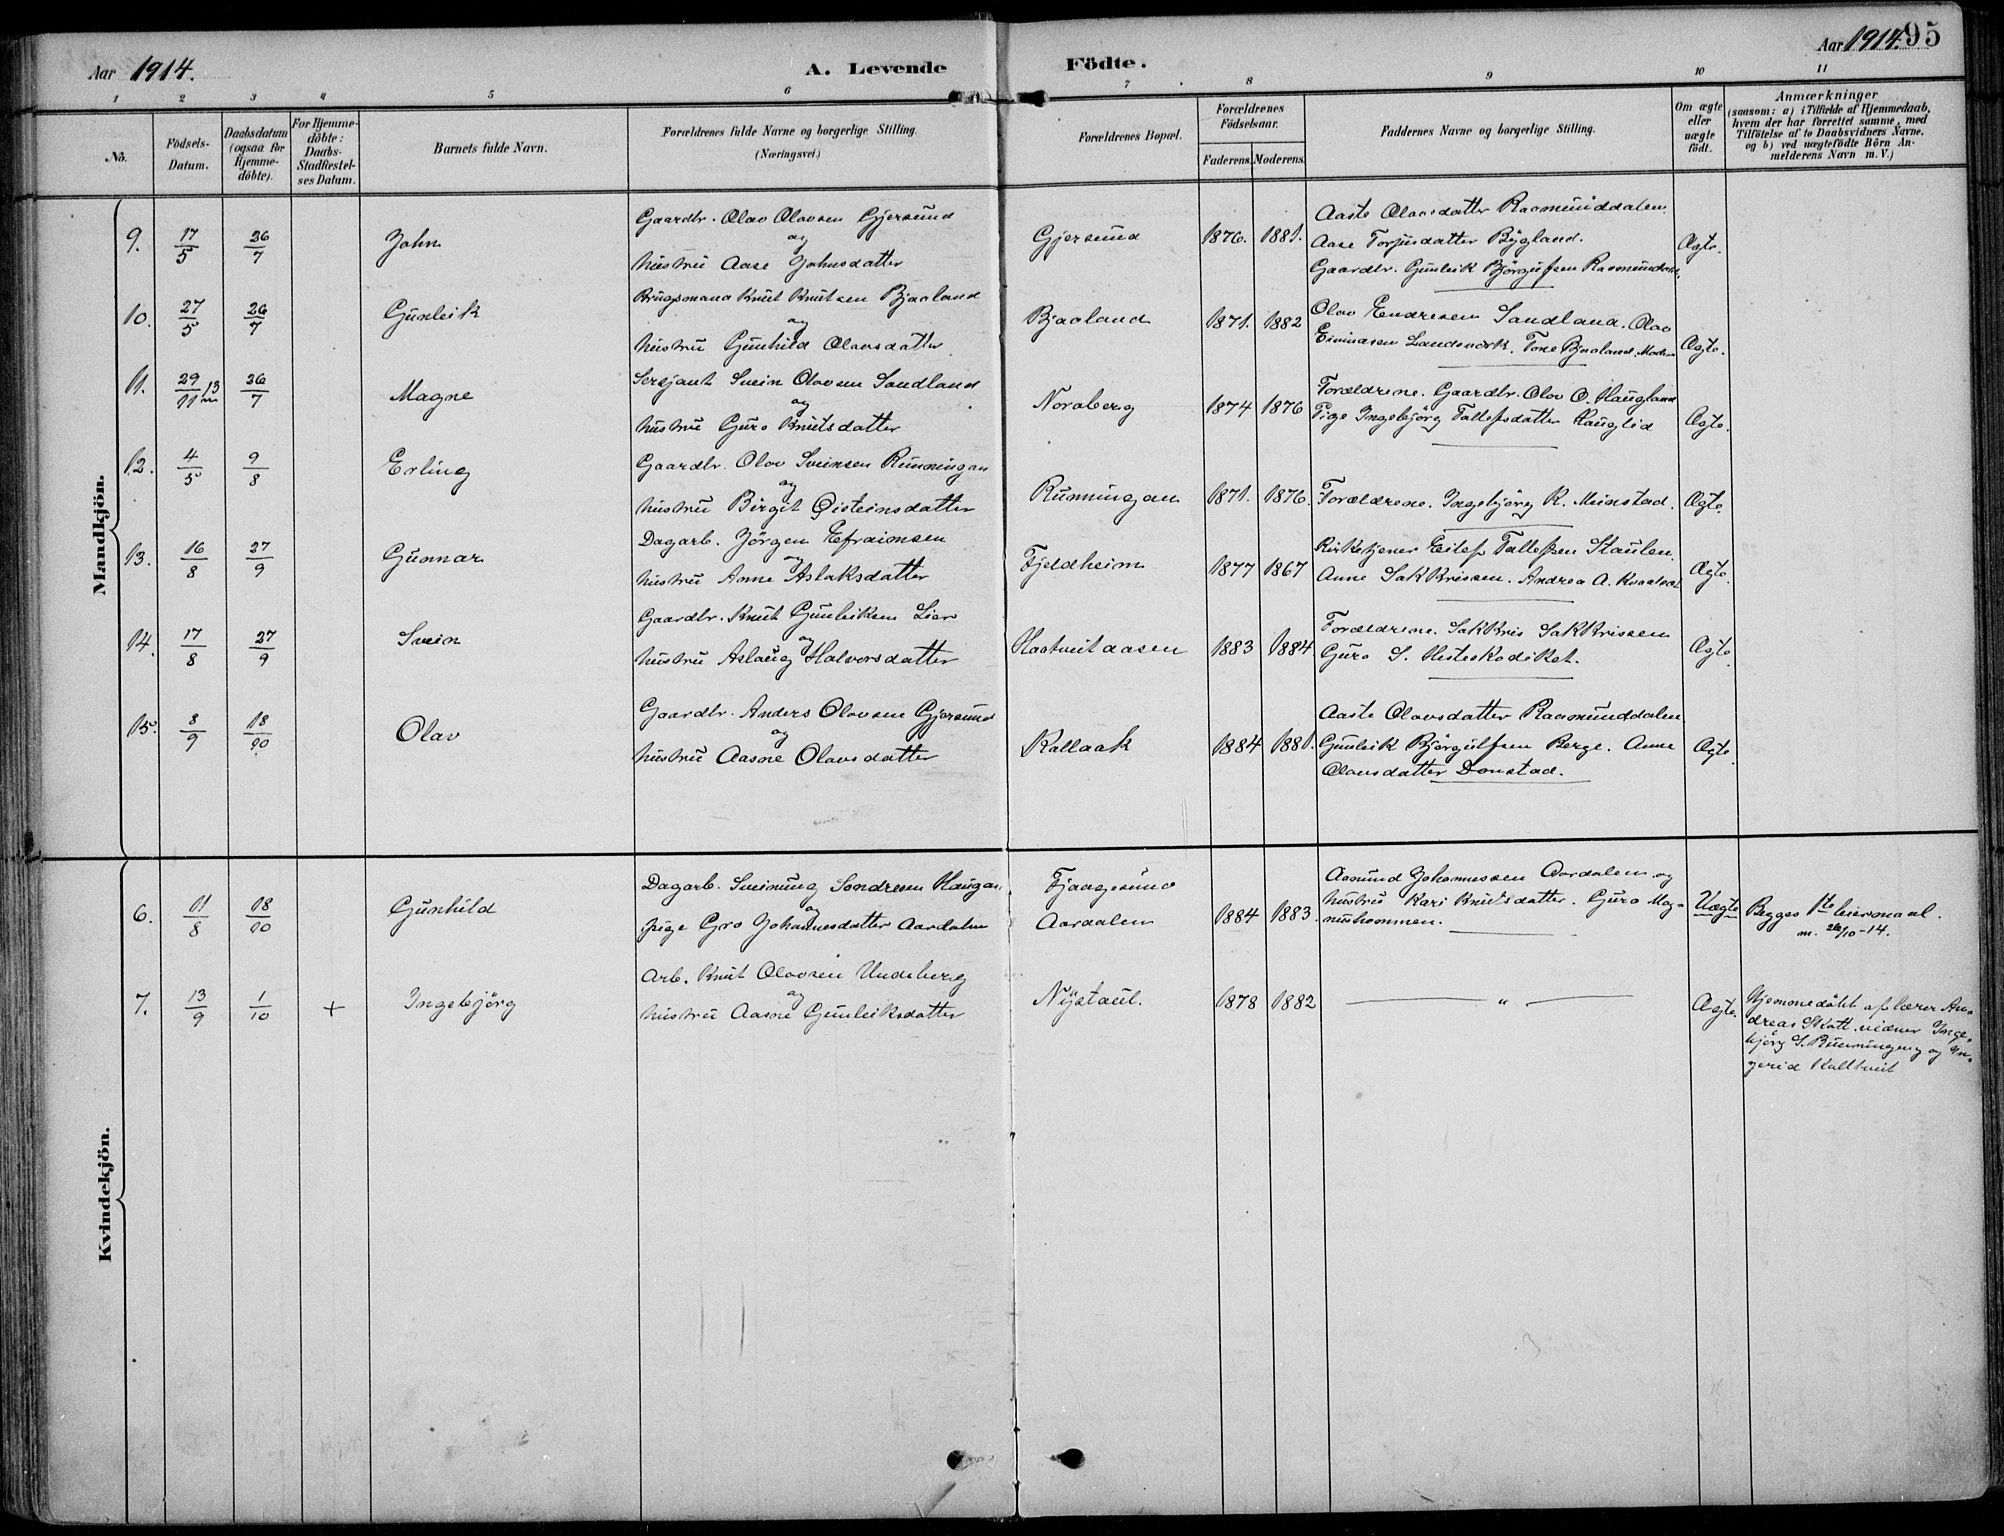 Aar 1914.
A. Levende
Födte.
Aar 1914.
95
1 2 3 4 5 6 7 8 9 10 11
No.
Födsels-
Datum.
Daabsdatum
(ogsaa for
Hjemme-
döbte).
For Hjemme-
döbte:
Daabs-
Stadfæstel-
ses Datum.
Barnets fulde Navn.
Forældrenes fulde Navne og borgerlige Stilling.
(Næringsvei.)
Forældrenes Bopæl.
Forældrenes
Födselsaar.
Faderens. Moderens.
Faddernes Navne og borgerlige Stilling.
Om ægte
eller
uægte
födt.
Anmærkninger
(saasom: a) i Tilfælde af Hjemmedaab,
hvem der har forrettet samme, med
Tilföielse af to Daabsvidners Navne,
og b) ved uægtefödte Börn An-
melderens Navn m. V.)
Mandkjön.
9. 17/5 26/7 John
Gaardbr. Olav Olavsen Gjersund
og
hustru Aase Johnsdatter
Gjersund 1876. 1881.
Aaste Olavsdatter Rasmunddalen.
Aase Torjusdatter Bygland.
Gaardbr. Gunleik Björgufsen
Ægte.
10. 27/5 26/7 Gunleik
Brugsmand Knut Knutsen Bjaaland
og
hustru Gunhild Olavsdatter
Bjaaland 1871. 1882
Olav Endresen Sandland. Olav
Eivindsen Landsverk. Tone Bjaaland.
Ægte.
11. 29/11 13 26/7 Magne
Sersjant Svein Olavsen Sandland
og
hustru Guro Knutsdatter
Noraberg 1874 1876
Forældrene. Gaardbr. Olav O. Haugland
Pige Ingebjörg Tallefsdatter Hauglid
Ægte.
12. 4/5 9/8 Erling
Gaardbr. Olav Sveinsen Runningan
og
hustru Birgit Öisteinsdatter
Runningan 1871. 1876.
Forældrene. Ingebjörg R. Meinstad.
Ægte.
13. 16/8 27/9 Gunnar
Dagarb. Jörgen Efraimsen
og
hustru Anne Aslaksdatter
Fjeldheim 1877 1867
Kirketjener Eilef Tallefsen Staulen.
Anne Sakkrissen. Andrea A.
Ægte.
14. 17/8 27/9 Svein
Gaardbr. Knut Gunleiksen Lier
og
hustru Aslaug Halvorsdatter
Haatveitaasen 1883 1884
Forældrene. Sakkris Sakkrissen
Guro S. Hesteskodiket.
Ægte.
15. 8/9 18/10 Olav
Gaardbr. Anders Olavsen Gjersund
og
hustru Aasne Olavsdatter
Kallaak 1884 1881.
Aaste Olavsdatter Rasmunddalen
Gunleik Björgulfsen Berge. Anne
Olavsdatter Donstad.
Ægte.
Kvindekjön.
6. 11/8 18/10 Gunhild
Dagarb. Sveinung Sondresen Haugan
og
pige Gro Johannesdatter Aardalen
Fjaagesund
Aardalen
1884 1883.
Aasmund Johannessen Aardalen og
hustru Kari Knutsdatter. Guro Mag-
nushommen.
Uægte
Begges 1ste leiermaal.
m. 26/10-14.
7. 13/9 1/10 + Ingebjörg
Arb. Knut Olavsen Undeberg
og
hustru Aasne Gunleiksdatter
Nystaul. 1878 1882
"
Ægte.
Hjemmedöbt af lærer An-
dreas Skatt. vidner Inge-
björg S. Runningen og In-
gerid Kaltveit